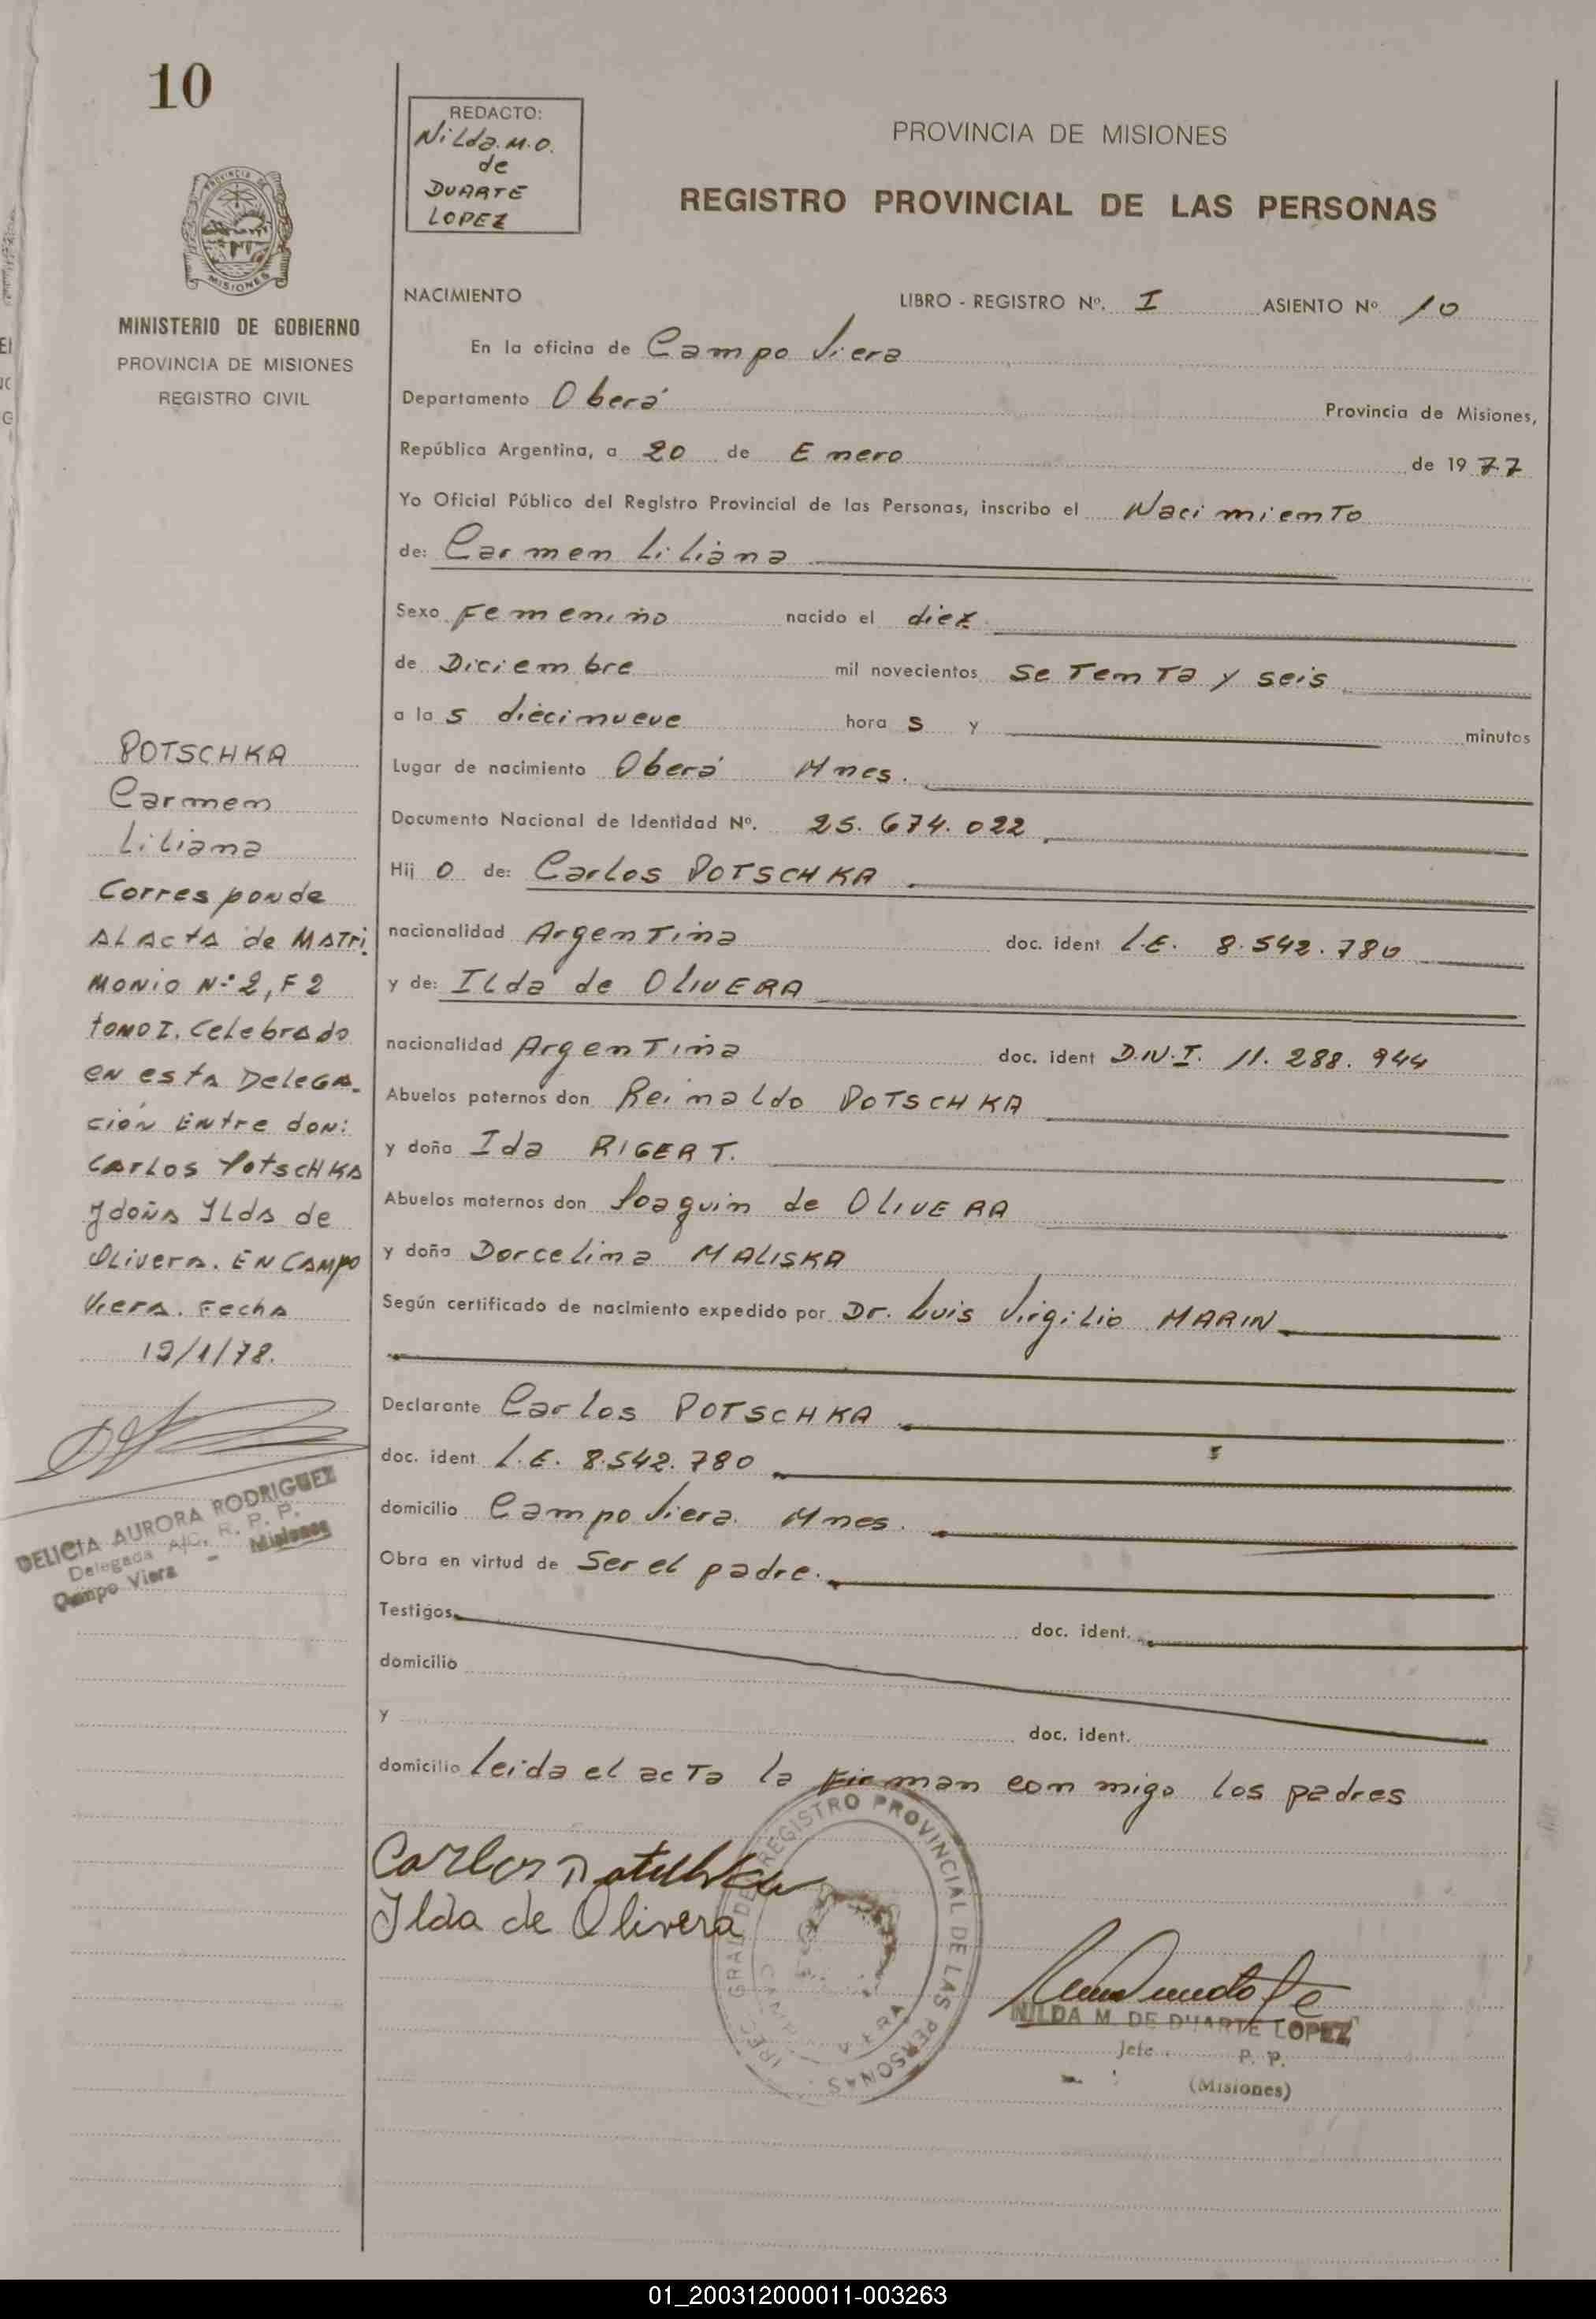 10
REDACTO:
Nilda. M. O.
de
DUARTE
LOPEZ
PROVINCIA DE MISIONES
REGISTRO PROVINCIAL DE LAS PERSONAS
PROVINCIA DE
MISIONES
MINISTERIO DE GOBIERNO
PROVINCIA DE MISIONES
REGISTRO CIVIL
NACIMIENTO LIBRO - REGISTRO Nº. I ASIENTO Nº 10
En la oficina de Campo Viera
Departamento Oberá Provincia de Misiones,
República Argentina, a 20 de Enero de 1977
Yo Oficial Público del Registro Provincial de las Personas, inscribo el Nacimiento
de: Carmen Liliana
Sexo Femenino nacido el diez
de Diciembre mil novecientos setenta y seis
a la s diecinueve hora s y minutos
Lugar de nacimiento Oberá Mnes.
Documento Nacional de Identidad Nº. 25.674.022
Hij o de: Carlos POTSCHKA
nacionalidad Argentina doc. ident L.E. 8.542.780
y de: Ilda de OLIVERA
nacionalidad Argentina doc. ident D.N.I. 11.288.944
Abuelos paternos don Reinaldo POTSCHKA
y doña Ida RIGERT.
Abuelos maternos don Joaquin de OLIVERA
y doña Dorcelina MALISKA
Según certificado de nacimiento expedido por Dr. Luis Virgilio MARIN
Declarante Carlos POTSCHKA
doc. ident L.E. 8.542.780
domicilio Campo Viera. Mnes.
Obra en virtud de Ser el padre.
Testigos doc. ident.
domicilio
y doc. ident.
domicilio leida el acta la firman conmigo los padres
Carlos Potschka
Ilda de Olivera
REGISTRO PROVINCIAL DE LAS PERSONAS
NILDA M. DE DUARTE LOPEZ
Jefe P. P.
(Misiones)
POTSCHKA
Carmen
Liliana
Corresponde
Al Acta de Matri
monio Nº 2, F 2
tomo I. Celebrado
en esta Delega-
ción Entre don:
Carlos Potschka
y doña Ilda de
Olivera. EN CAMPO
Viera. Fecha
19/1/78.
DELICIA AURORA RODRIGUEZ
Delegada A/C. R. P. P.
Campo Viera - Misiones
01_200312000011-003263